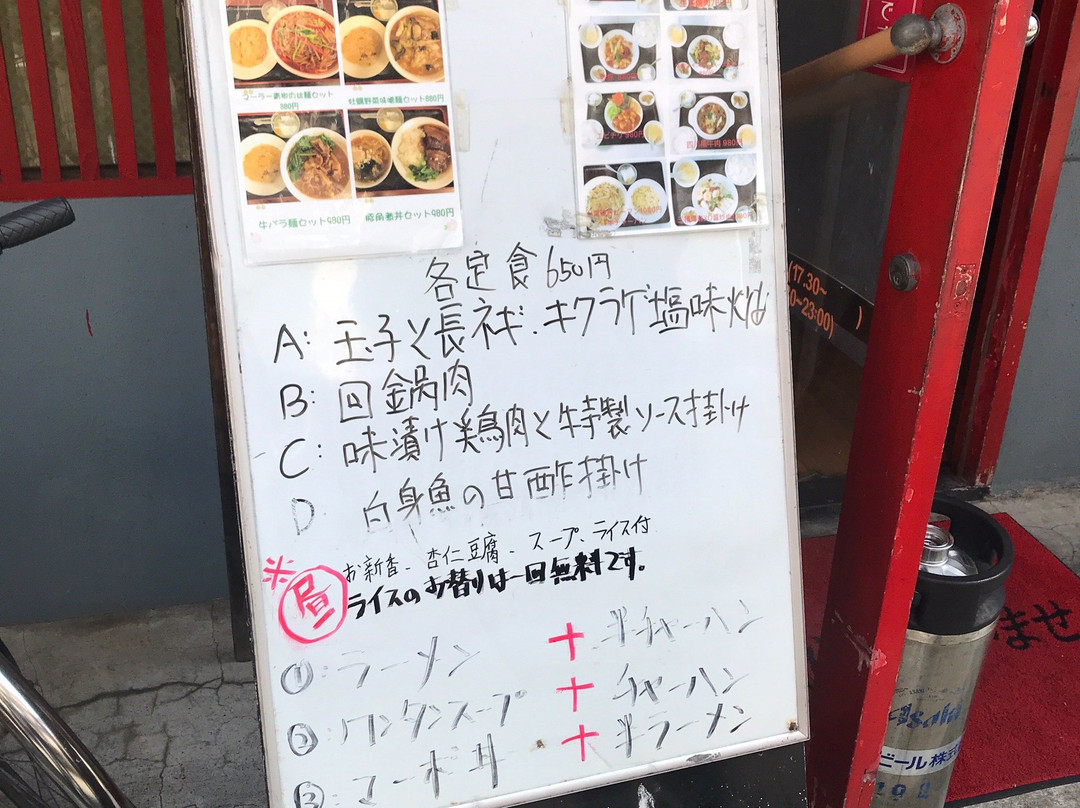 980円
牡蠣野菜味噌麺セット980円
牛バラ麺セット980円
豚角煮丼セット980円
各定食650円
A:玉子と長ネギ.キクラゲ塩味炒
B:回鍋肉
C:味漬け鶏肉と特製ソース掛け
D 白身魚の甘酢掛け
※昼
お新香、杏仁豆腐、スープ、ライス付
ライスのお替りは一回無料です。
①:ラーメン + 半チャーハン
②ワンタンスープ + チャーハン
③マーボ丼 + 半ラーメン
(17.30~
~23:00)
ませ
ビール株式